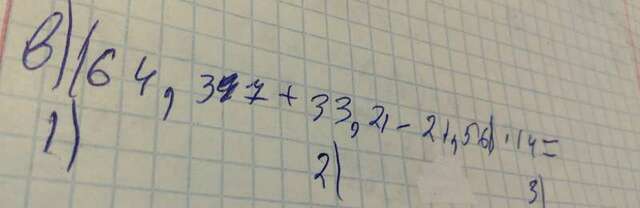 в) (64,377+33,21-21,56)·14=
1) 2) 3)